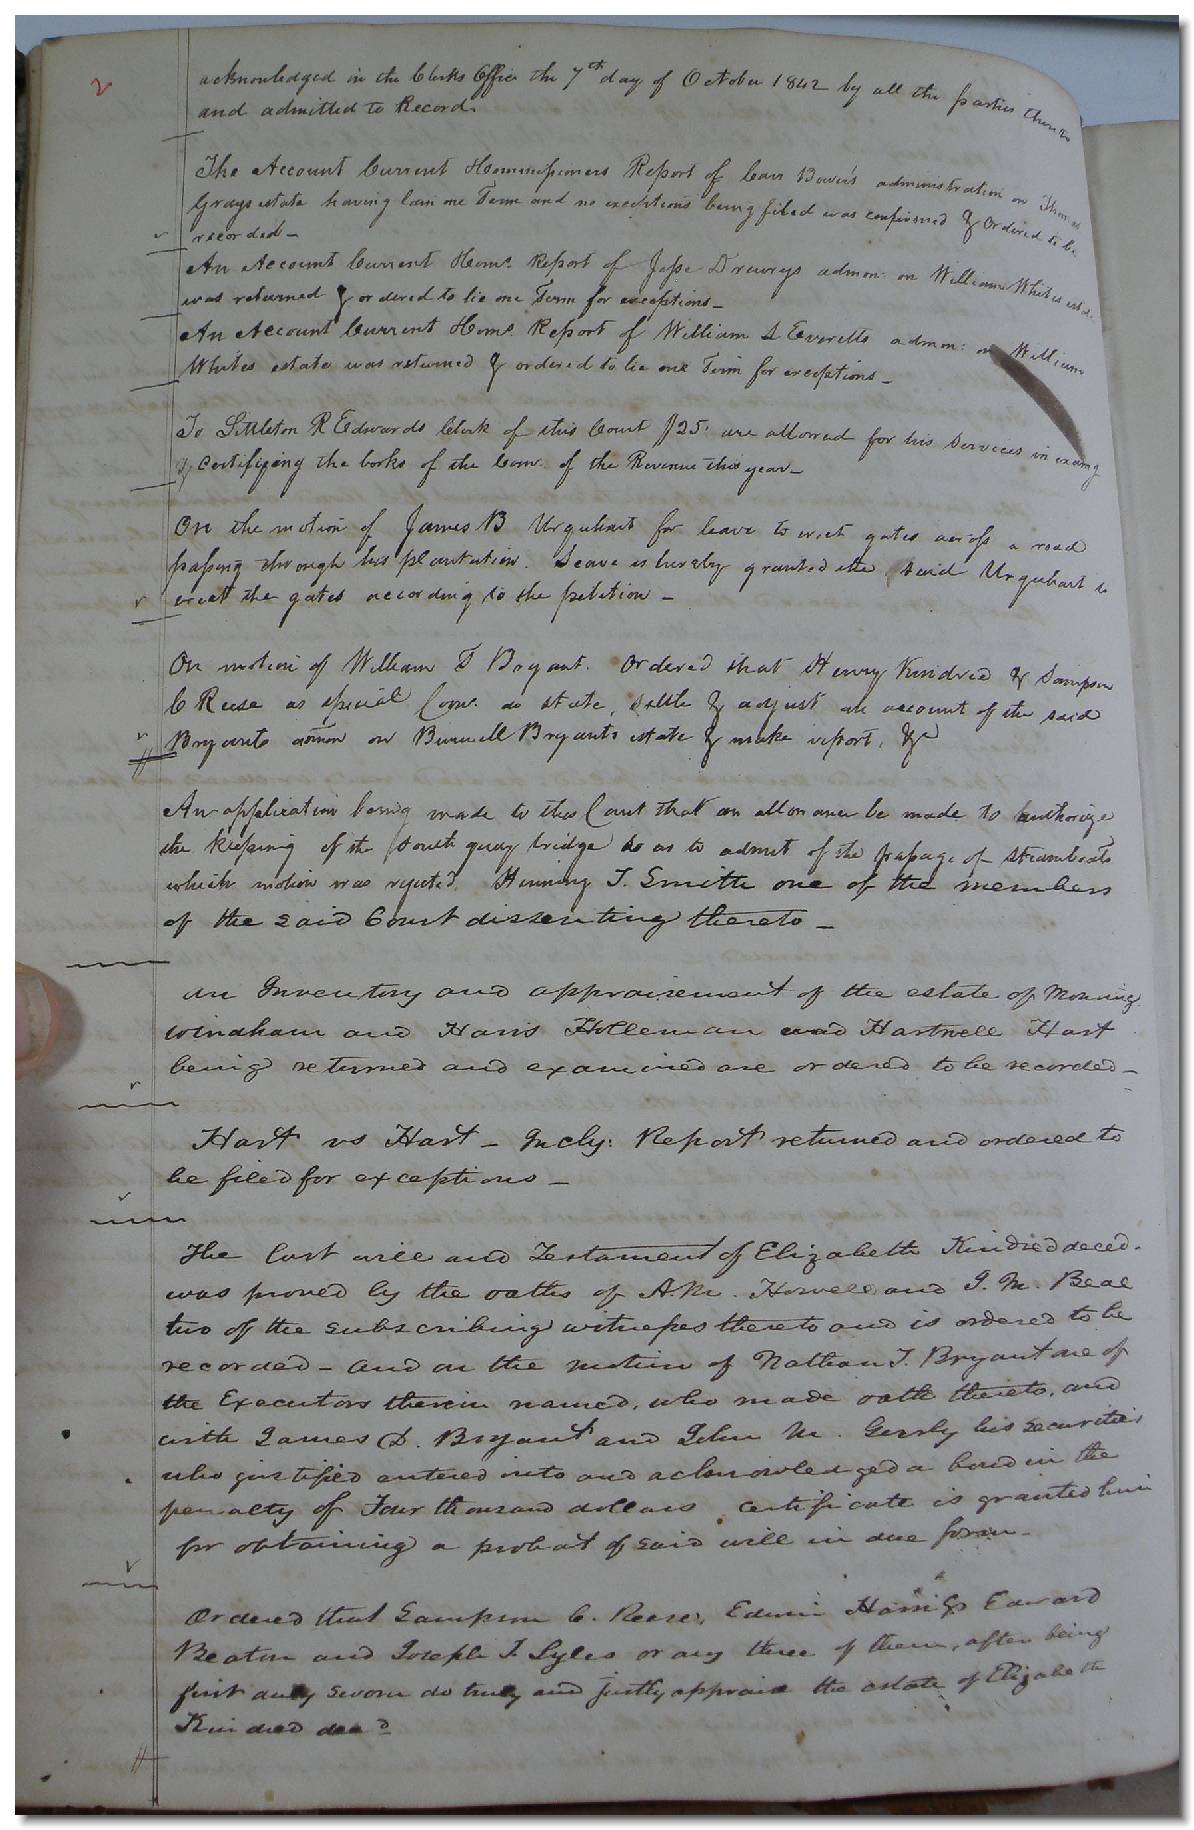 2
acknowledged in the Clerks Office the 7th day of October 1842 by all the parties thereto
and admitted to Record.
The Account Current & Commissioners Report of Carr Bowers administration on Thomas
Grays estate having lain one Term and no exceptions being filed was confirmed & Ordered to be
recorded -
An Account Current & Coms. Report of Jesse Drewrys admon: on William Whites estate
was returned & ordered to lie one Term for exceptions -
An Account Current & Coms. Report of William S Everetts admon: on William
Whites estate was returned & ordered to lie one Term for exceptions -
To Littleton R Edwards Clerk of this Court $25. are allowed for his Services in examg
& Certifying the books of the Com. of the Revenue this year -
On the motion of James B Urquhart for leave to erect gates across a road
passing through his plantation. Leave is hereby granted the said Urquhart to
erect the gates according to the petition -
On motion of William T Bryant. Ordered that Henry Kindred & Sampson
C Reese as special Com. do state, settle & adjust an account of the said
Bryants admon on Burwell Bryants estate & make report, &c
An application being made to this Court that an allowance be made to authorize
the keeping of the South quay bridge so as to admit of the passage of Steamboats
which motion was rejected. Henning T. Smith one of the members
of the said Court dissenting thereto -
An Inventory and appraisement of the estate of Mourning
Windham and Haris Holleman and Hartwell Hart
being returned and examined are ordered to be recorded -
Hart vs Hart - Incly: Report returned and ordered to
be filed for exceptions -
The last will and Testament of Elizabeth Kindred deced.
was proved by the oaths of A.M. Howell and J. M. Beal
two of the subscribing witnesses thereto and is ordered to be
recorded - and on the motion of Nathan T. Bryant one of
the Executors therein named, who made oath thereto, and
with James D. Bryant and John M. Gurly his Securities
who justified entered into and acknowledged a bond in the
penalty of Four thousand dollars certificate is granted him
for obtaining a probat of said will in due form -
Ordered that Sampson C. Reese, Edwin Harris Edward
Beaton and Joseph T. Lyles or any three of them, after being
first duly sworn do truly and justly appraise the estate of Elizabeth
Kindred decd